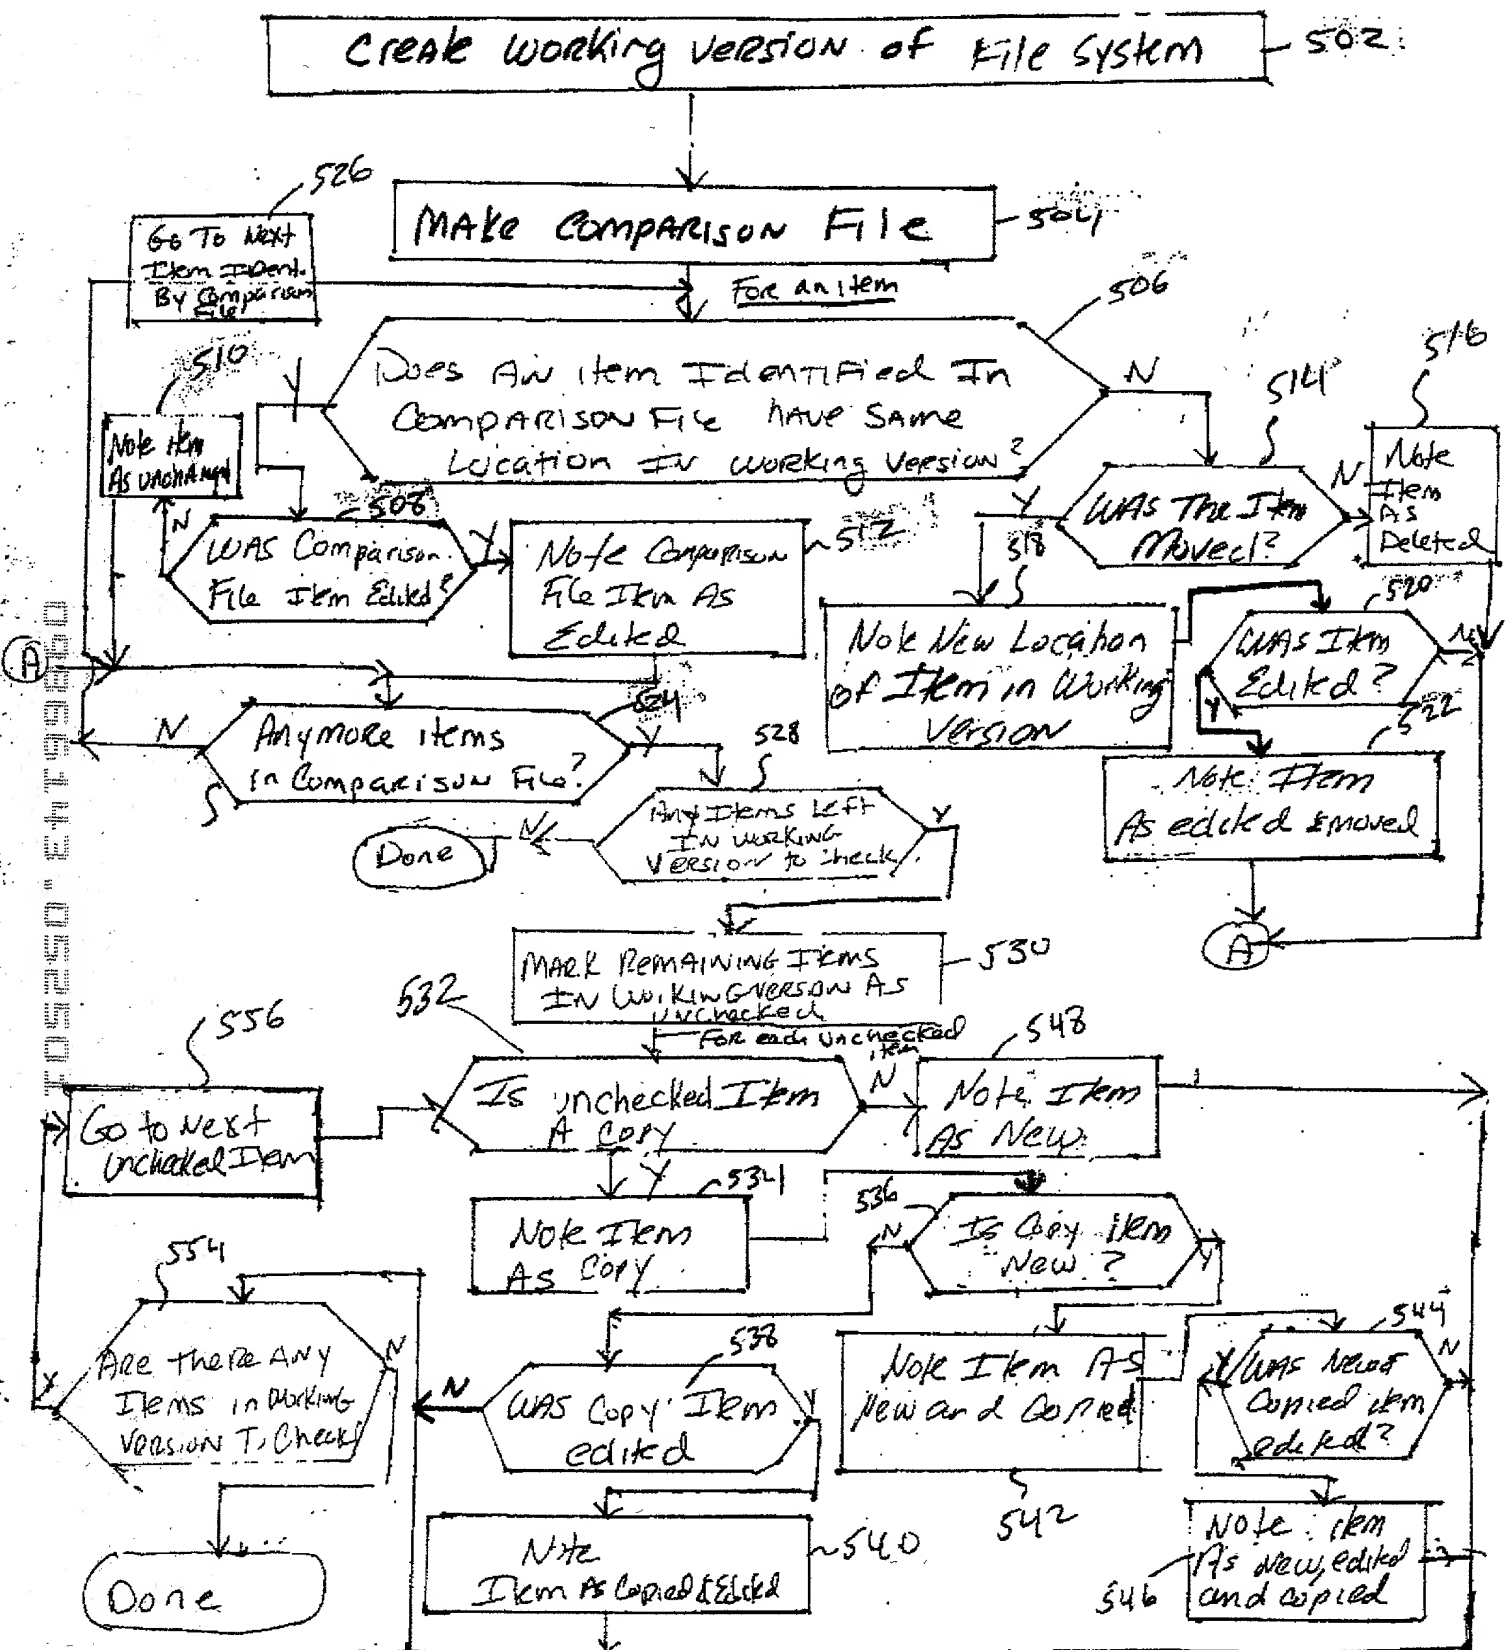 Create Working Version of File System
502
526
Go To Next
Item Ident.
By Comparison
File
Make Comparison File
504
For an item
506
Does An item Identified In
Comparison File have Same
Location In Working Version?
Y
N
510
Note item
As unchanged
508
Was Comparison
File Item Edited?
N
Y
512
Note Comparison
File Item As
Edited
514
Was The Item
Moved?
Y
N
516
Note
Item
As
Deleted
518
Note New Location
of Item in Working
Version
520
Was Item
Edited?
N
Y
522
Note Item
As edited & moved
A
A
524
Anymore items
in Comparison File?
N
Y
528
Any Items Left
In Working
Version to check
N
Y
Done
530
Mark Remaining Items
In Working Verson As
Unchecked
For each Unchecked
item
532
Is unchecked Item
A Copy
N
Y
548
Note Item
As New
556
Go to Next
Unchecked Item
534
Note Item
As Copy
536
Is Copy item
New?
N
Y
554
Are there Any
Items in Working
Version To Check
Y
N
Done
538
Was Copy Item
edited
N
Y
540
Note
Item As Copied & Edited
Note Item As
New and Copied
542
544
Was New &
Copied item
edited?
Y
N
546
Note item
As New, edited
and copied